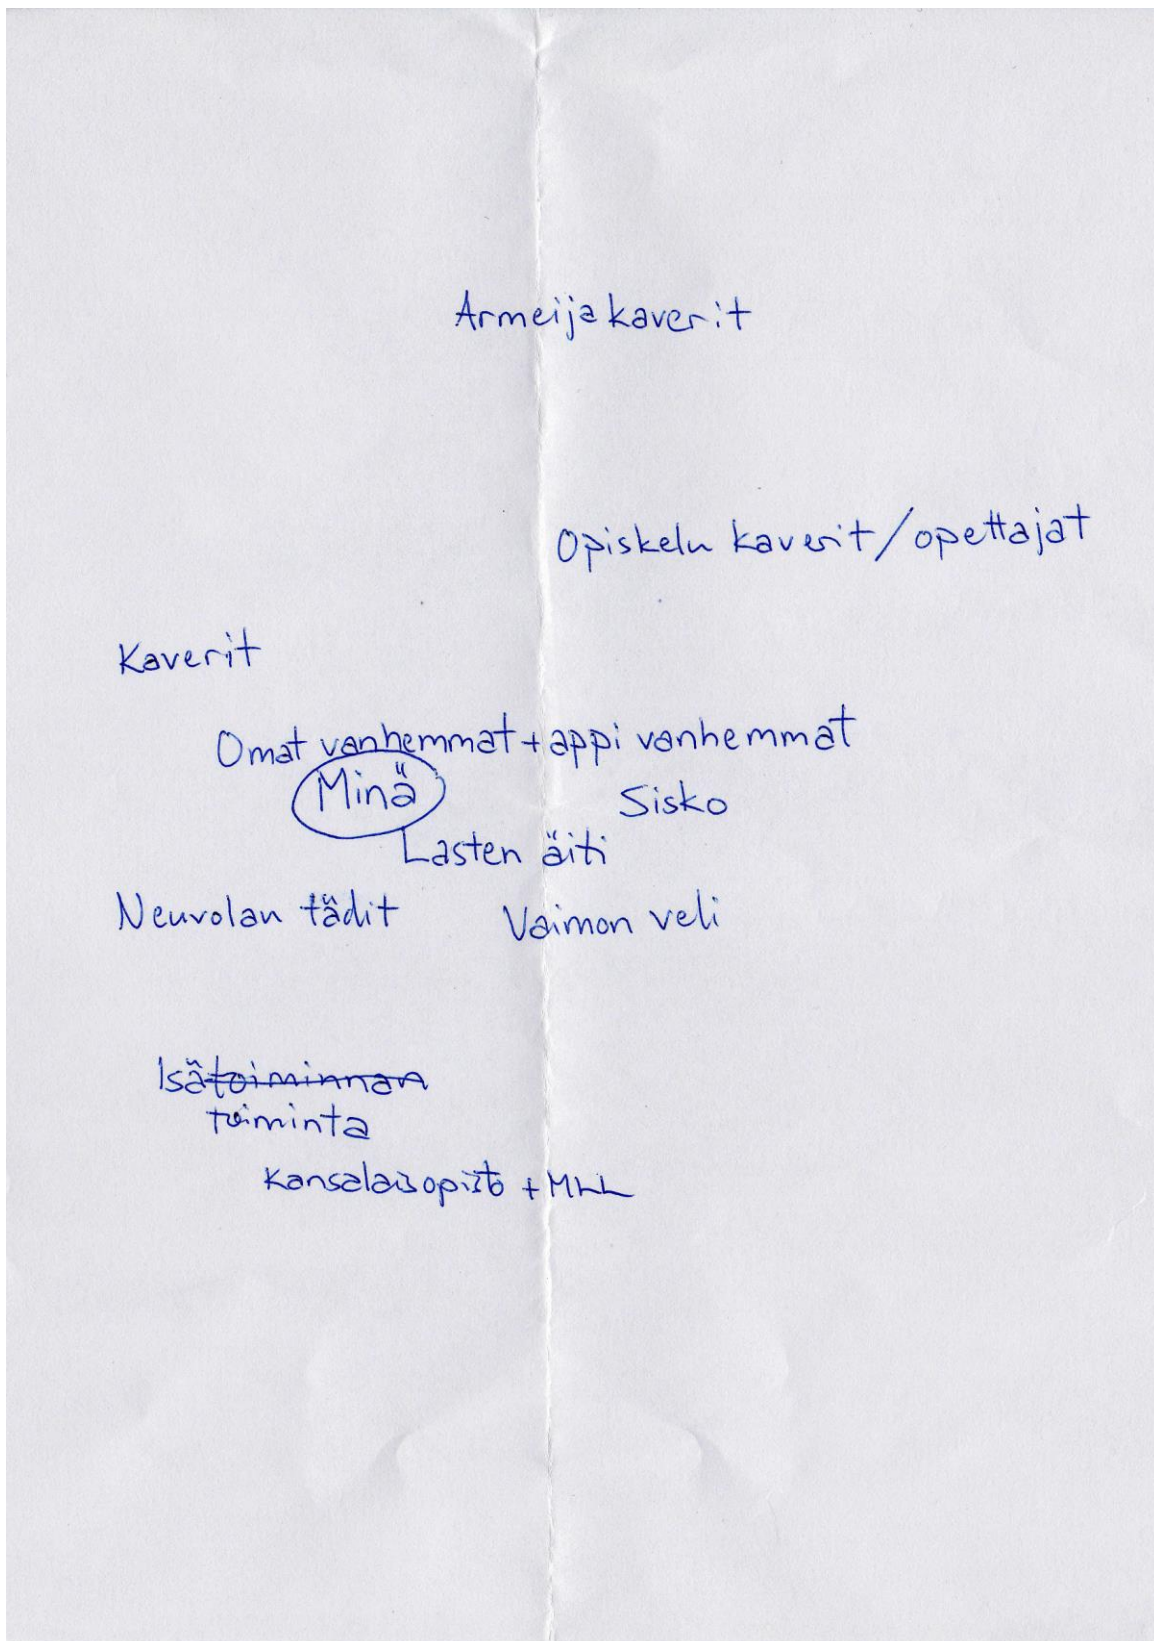 Armeija kaverit
Opiskelu kaverit/opettajat
Kaverit
Omat vanhemmat + appi vanhemmat
Minä
Sisko
Lasten äiti
Neuvolan tädit
Vaimon veli
Isätoiminnan
toiminta
Kansalaisopisto + MLL